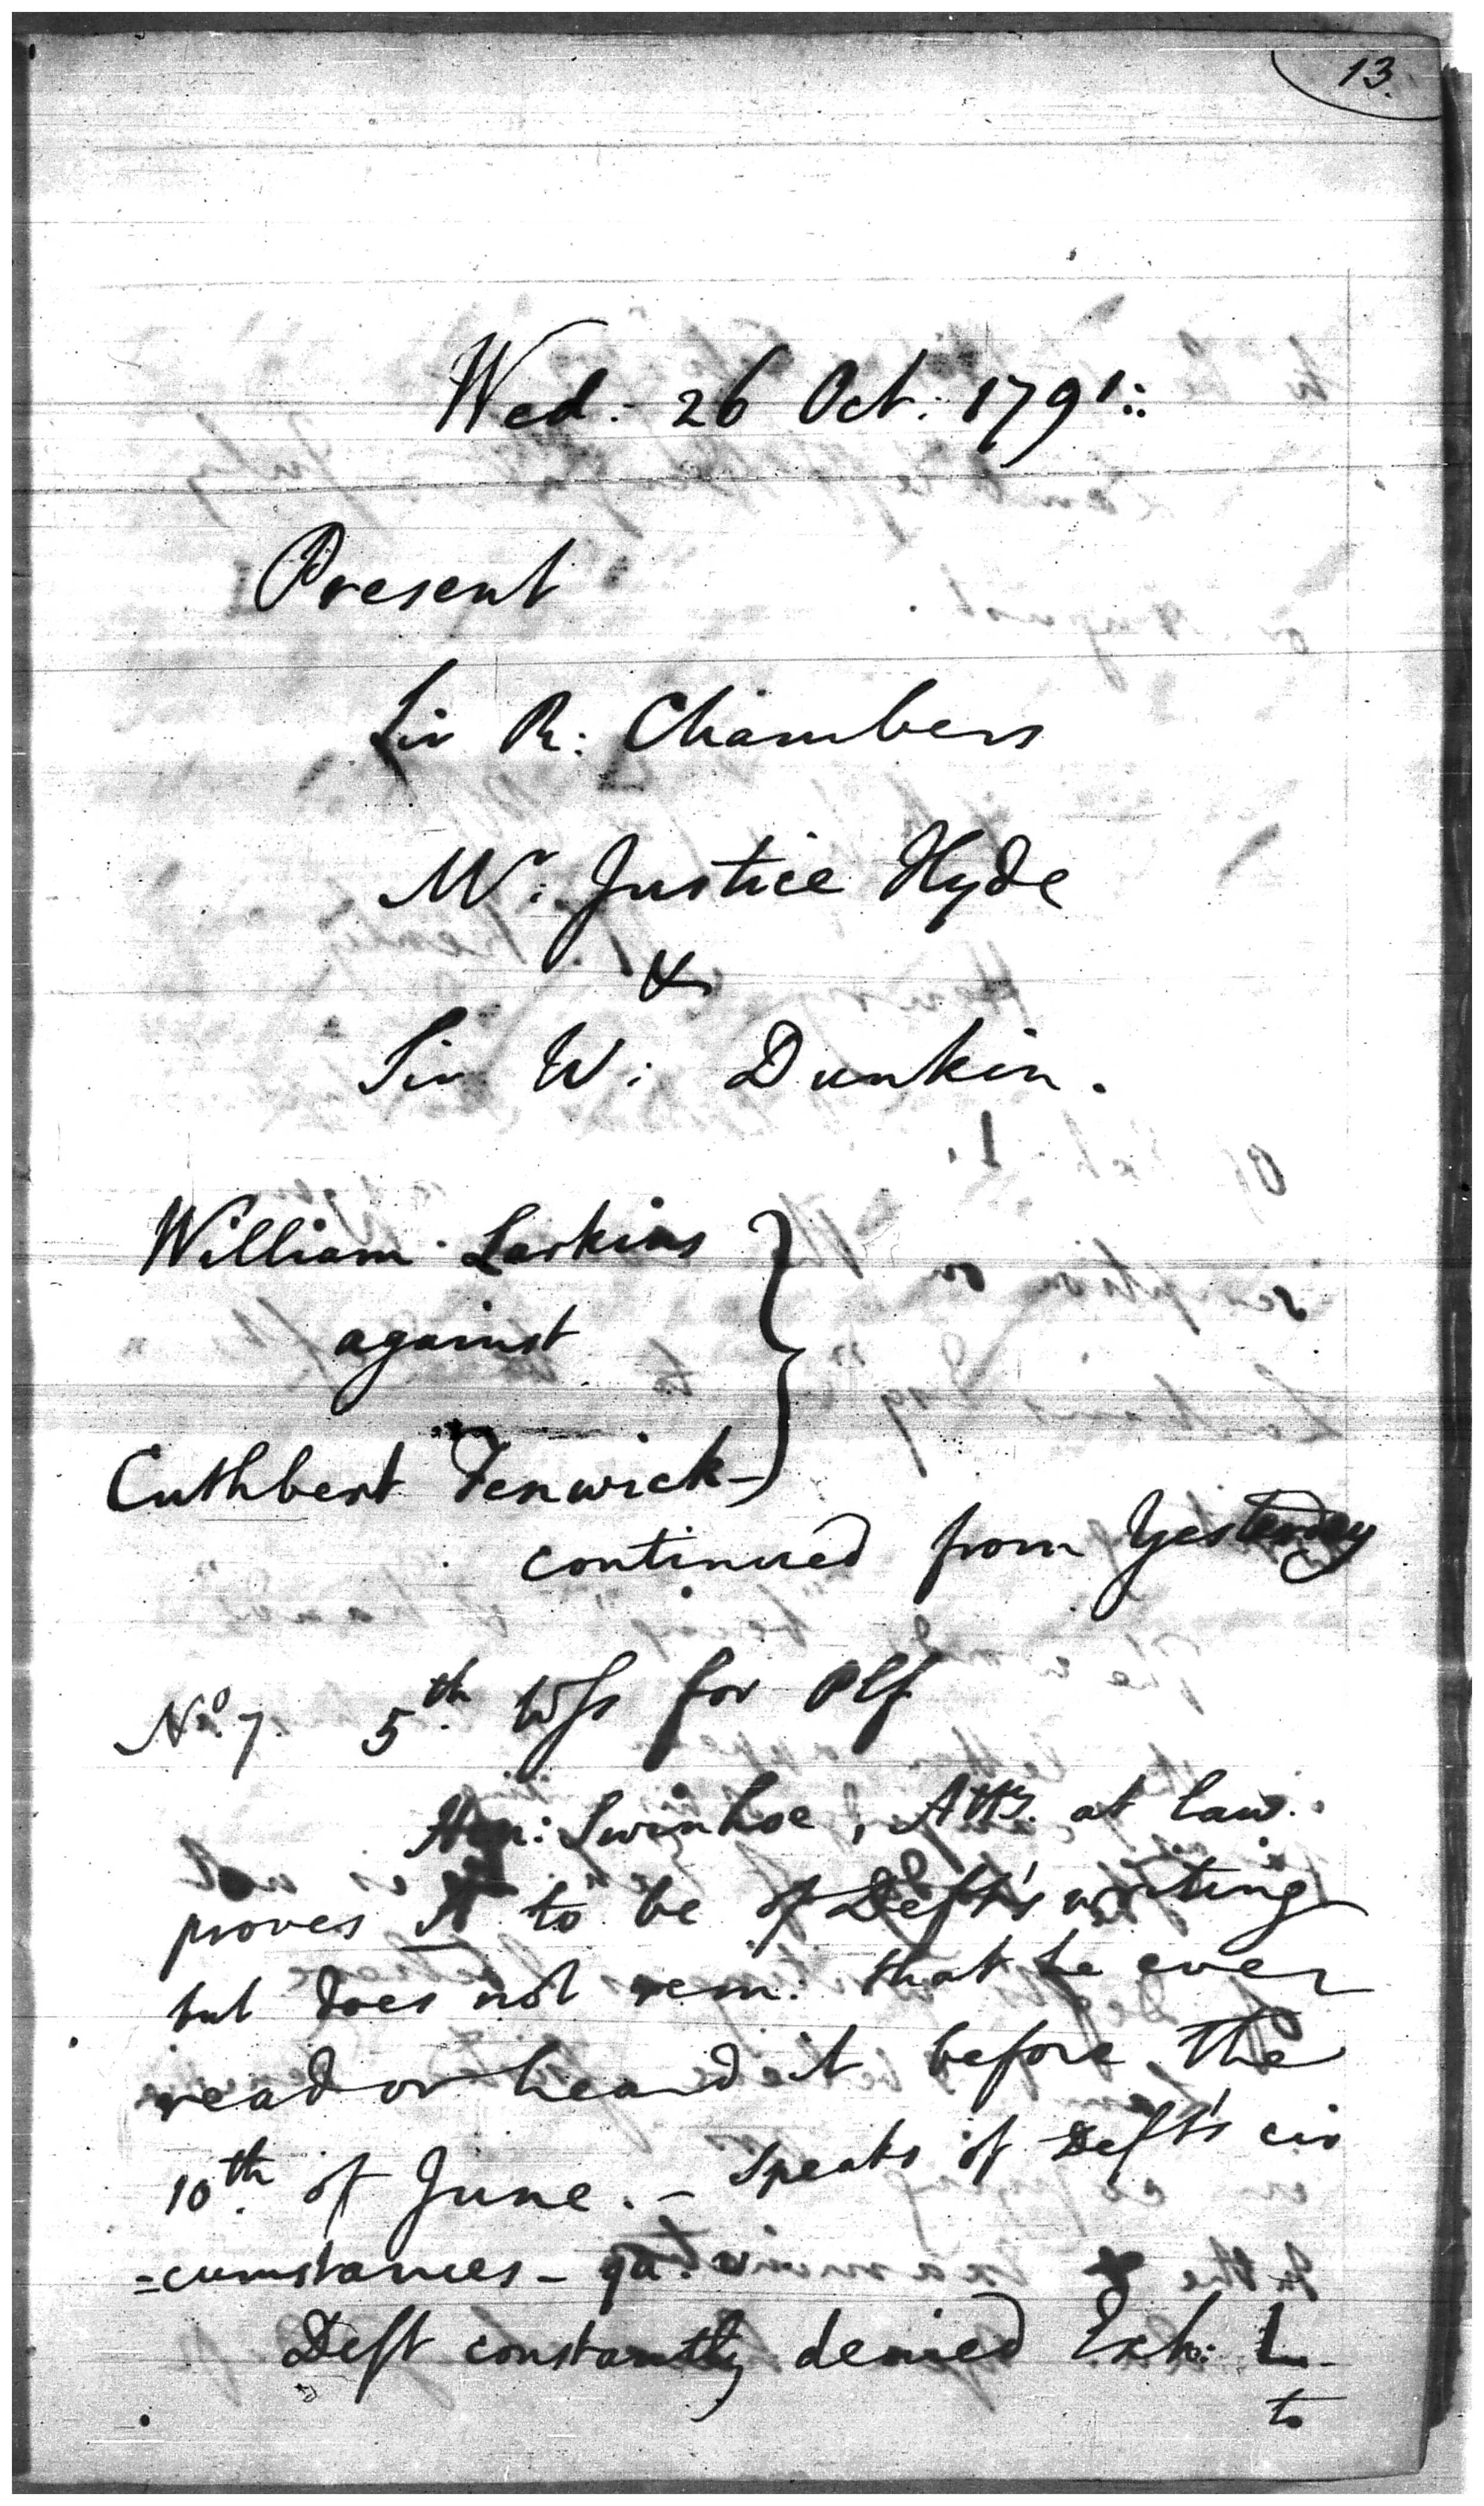 13.
Wed: 26 Oct: 1791:
Present
Sir R: Chambers
Mr: Justice Hyde
&
Sir W: Dunkin.
William Larkins
against
Cuthbert Fenwick
continued from Yesterday
No. 7. 5th. Wss for Plf
Hen: Swinhoe, Atty. at law.
proves A to be of Deft's writing
but does not rem: that he ever
read or heard it before the
10th. of June. - Speaks of Deft's cir
=cumstances - qu:
Deft constantly denied Exh: 1
to